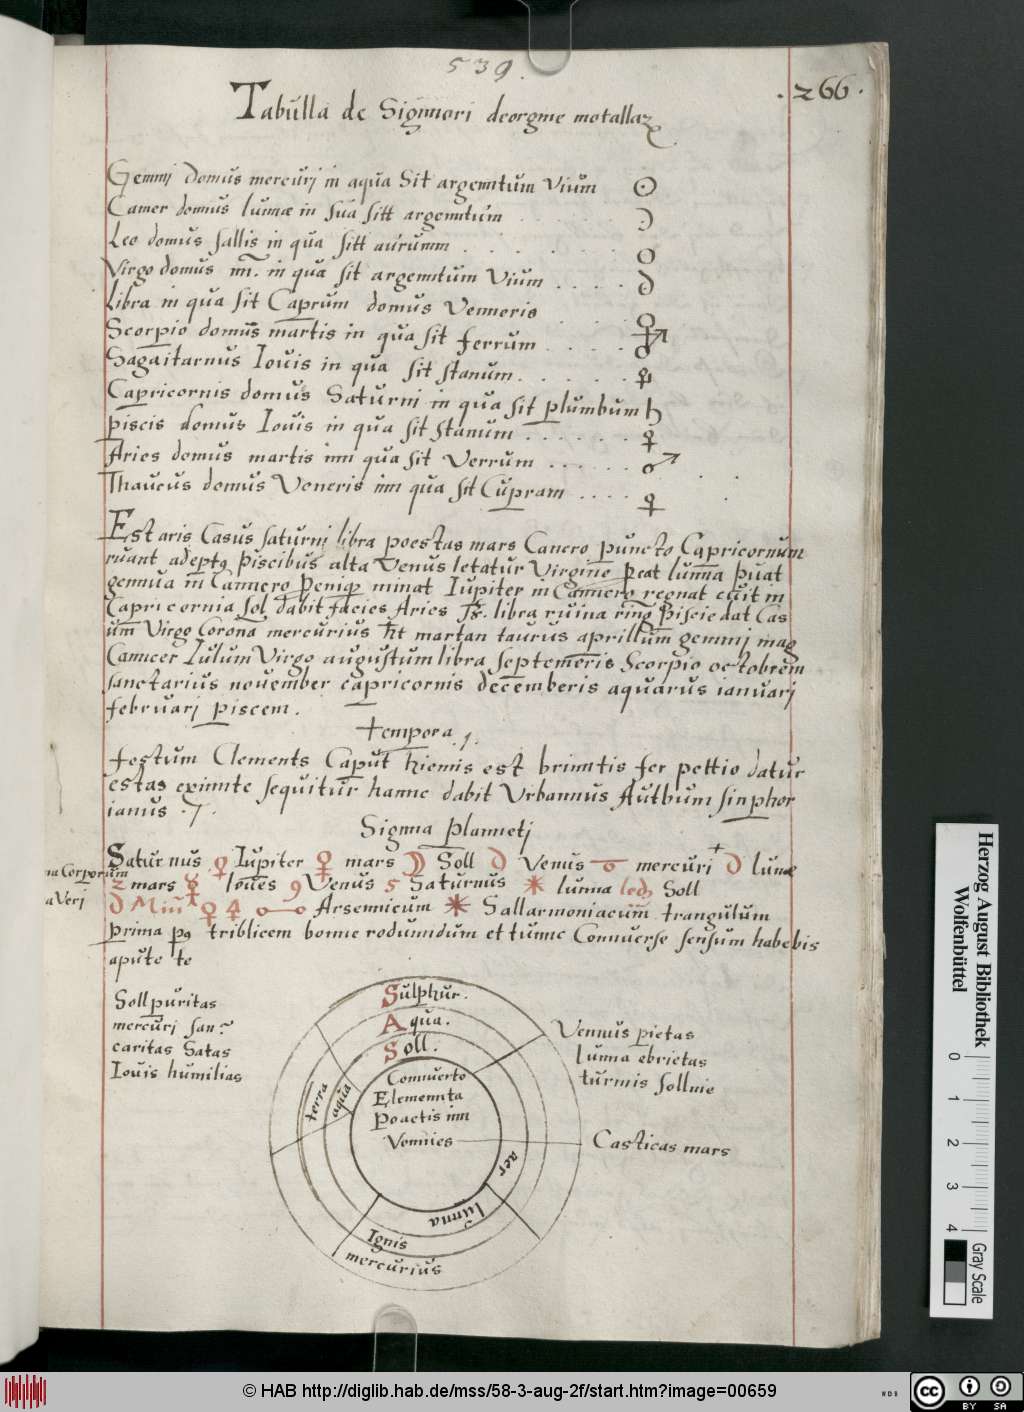 539.
266.
Tabulla de Signnori deorgme motallaz
Gemmj domus mercurj in aqua Sit argenntum Vium
Camer domus lunnæ in sua sitt argenntum
Leo domus sallis in qua sitt aurumm
Virgo domus m. in qua sit argenntum Vium
Libra in qua sit Caprum domus Venneris
Scorpio domus martis in qua sit ferrum
Sagaitarnus Iouis in qua sit stanum
Capricornis domus Saturni in qua sit plumbum ♄
piscis domus Iouis in qua sit stanum
Aries domus martis inn qua sit Verrum
Thaucus domus Veneris inn qua sit Cupram
Est aris Casus saturnj libra poestas mars Canero puncto Capricornum
ruant adept9 Piscibus alta Venus letatur Virgine peat lunna puat
gennua in Canncero minat Iupiter in Canncero regnat cuit in
Capricornia Sol dabit facies Aries libra ruina ring Piscie dat Cas
um Virgo Corona mercurius martan taurus aprillum gemmj mag
Canncer Iulum Virgo augustum libra septemeris Scorpio octobrem
sanctarius nouember capricornis decemberis aquarus ianuarj
februarj piscem.
tempora
festum Clements Caput hiemis est brinntis fer pettio datur
estas exinnte sequitur hannc dabit Vrbannus Autbum sinphor
ianus .7.
Signna plannetj
Saturnus ♀ Iupiter ♀ mars Soll Venus mercuri lunæ
na Corporum
2 mars Ioues 9 Venus 5 Saturnus * lunna Soll
a Veri
♀ 4 Arsennicum * Sallarmoniacum trangulum
prima p9 triblicem bonne rodunndum et tunnc Connuerse sensum habebis
apute te
Soll puritas
mercurj san
caritas Satas
Iouis humilias
Sulphur.
Aqua.
Soll.
Connuerto
Elemennta
Poactis inn
Vonnies
terra
aqua
aer
lunna
Ignis
mercurius
Vennus pietas
lunna ebrietas
turmis sollnie
Casticas mars
Herzog August Bibliothek
Wolfenbüttel
0 1 2 3 4
Gray Scale
© HAB http://diglib.hab.de/mss/58-3-aug-2f/start.htm?image=00659
RDS
cc
BY SA